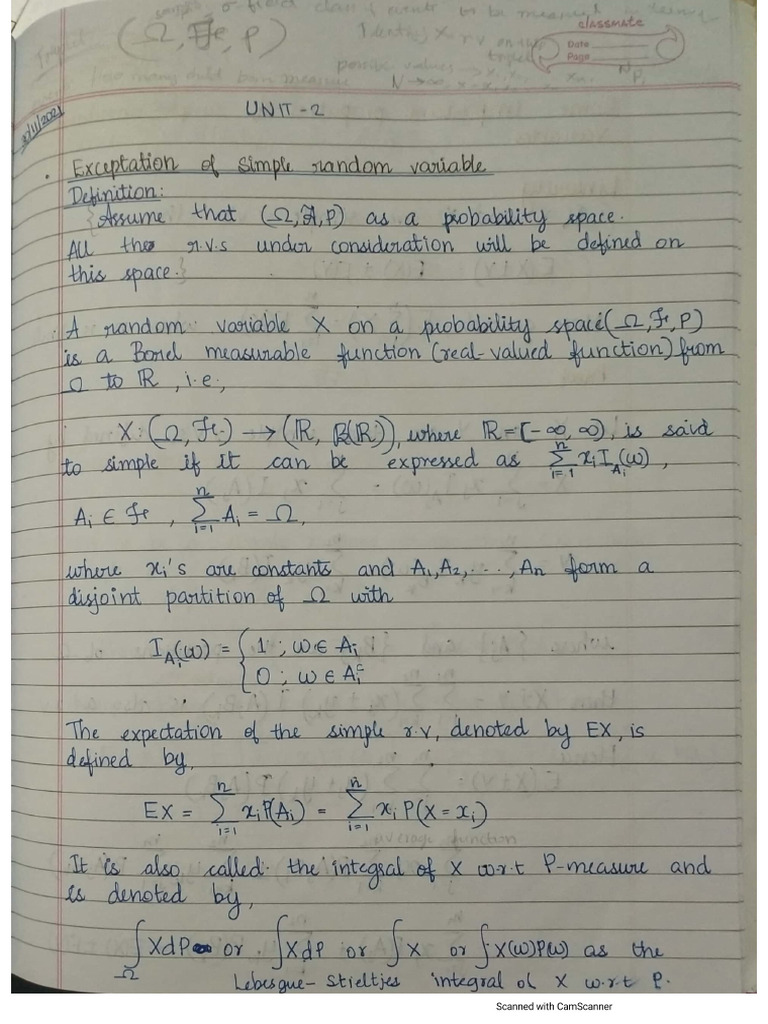 (Ω, Fe, P)
classmate
Date
Page
UNIT - 2
Exceptation of simple random variable
Definition:
{Assume that (Ω, A, P) as a probability space.
All the r.v.s under consideration will be defined on
this space.}
A random variable X on a probability space (Ω, Fe, P)
is a Borel measurable function (real-valued function) from
Ω to ℝ, i.e.,
X: (Ω, Fe) → (ℝ, B(ℝ)), where ℝ = [-∞, ∞), is said
to simple if it can be expressed as ∑ᵢ₌₁ⁿ xᵢ I_Aᵢ(ω),
Aᵢ ∈ Fe, ∑ᵢ₌₁ⁿ Aᵢ = Ω,
where xᵢ's are constants and A₁, A₂, ..., An form a
disjoint partition of Ω with
I_Aᵢ(ω) = { 1 ; ω ∈ Aᵢ
0 ; ω ∈ Aᵢᶜ
The expectation of the simple r.v, denoted by EX, is
defined by,
EX = ∑ᵢ₌₁ⁿ xᵢ P(Aᵢ) = ∑ᵢ₌₁ⁿ xᵢ P(X = xᵢ)
It is also called the integral of X w.r.t P-measure and
is denoted by,
∫_Ω XdP or ∫XdP or ∫X or ∫X(ω)P(ω) as the
Lebesgue-Stieltjes integral of X w.r.t P.
Scanned with CamScanner